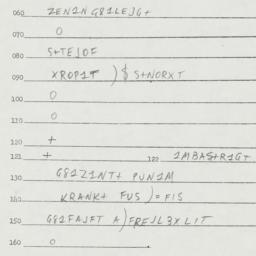 060 ZEN1N G81LEJG+
070 O
075 S+TEJOF
080 XROP1T )$ S+NORXT
100 O
110 O
120 +
121 + 122 1MBAS+R1G+
130 G81Z1NT+ PUN1M
140 KRANK+ FUS )= FIS
150 G81FAJFT A)FREJL3XLIT
160 O